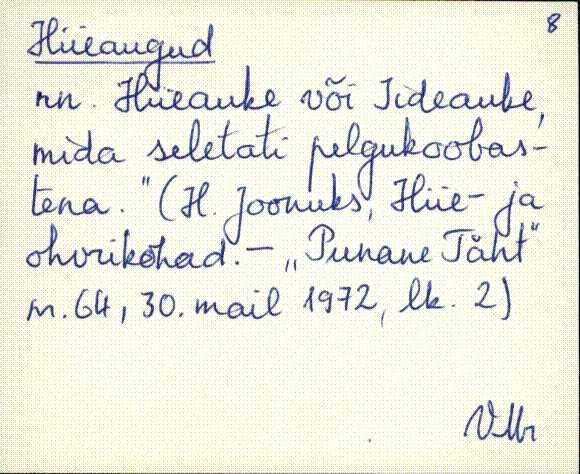 8
Hiieaugud
nn. Hiieauke või Iideauke,
mida seletati pelgukoobas-
tena." (H. Joonuks, Hiie- ja
ohvrikohad. — „Punane Täht"
nr. 64, 30. mail 1972, lk. 2)